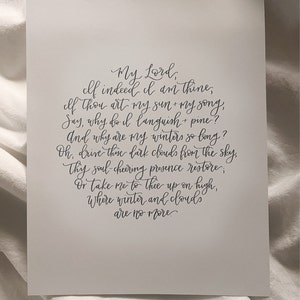 My Lord,
If indeed I am Thine,
If Thou art my sun + my song,
Say, why do I languish + pine?
And why are my winters so long?
Oh, drive these dark clouds from the sky,
Thy soul-cheering presence restore;
Or take me to Thee up on high,
Where winter and clouds
are no more